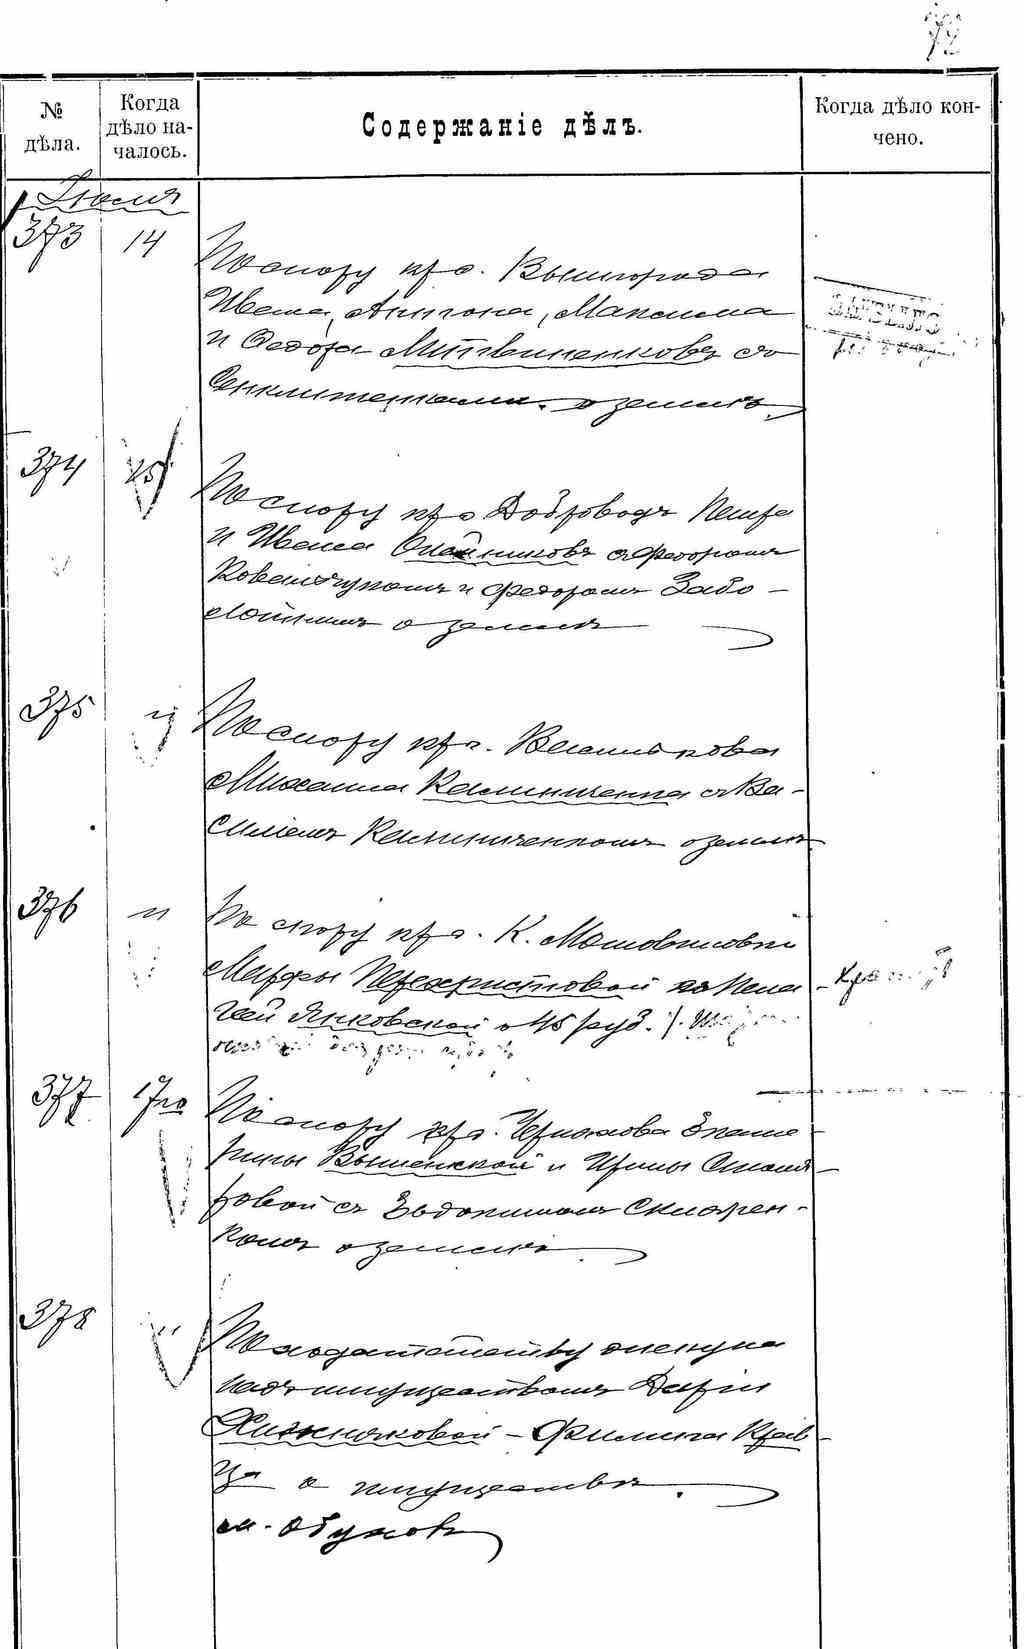 72
№ дѣла.
Когда дѣло на-
чалось.
Содержаніе дѣлъ.
Когда дѣло кон-
чено.
Іюля
373 14 По спору кр-ъ. Вышгорода
Ивана, Антона, Максима
и Федора Литвиненковъ съ
о землѣ.
374 15 По спору кр-ъ Доброводъ Петра
и Ивана Олейниковъ съ Федоромъ
Ковальчукомъ и Федоромъ Забо-
лотнымъ о землѣ
375 " По спору кр-ъ. Василькова
Михаила Калиниченка съ Ва-
силіемъ Калиниченкомъ о землѣ
376 " По спору кр-ъ. К. Мотовиловки
Марфы Перехристовой съ Пела-
геей Янковской о 45 руб.
377 17го По спору кр-ъ. Черняхова Екате-
рины Вышенской и Ирины Столя-
ровой съ Евдокимомъ Скляren-
комъ о землѣ
378 " По ходатайству опекуна
надъ имуществомъ Даріи
Хижняковой - Филиппа Крав-
ца о имуществѣ.
м. Обуховъ